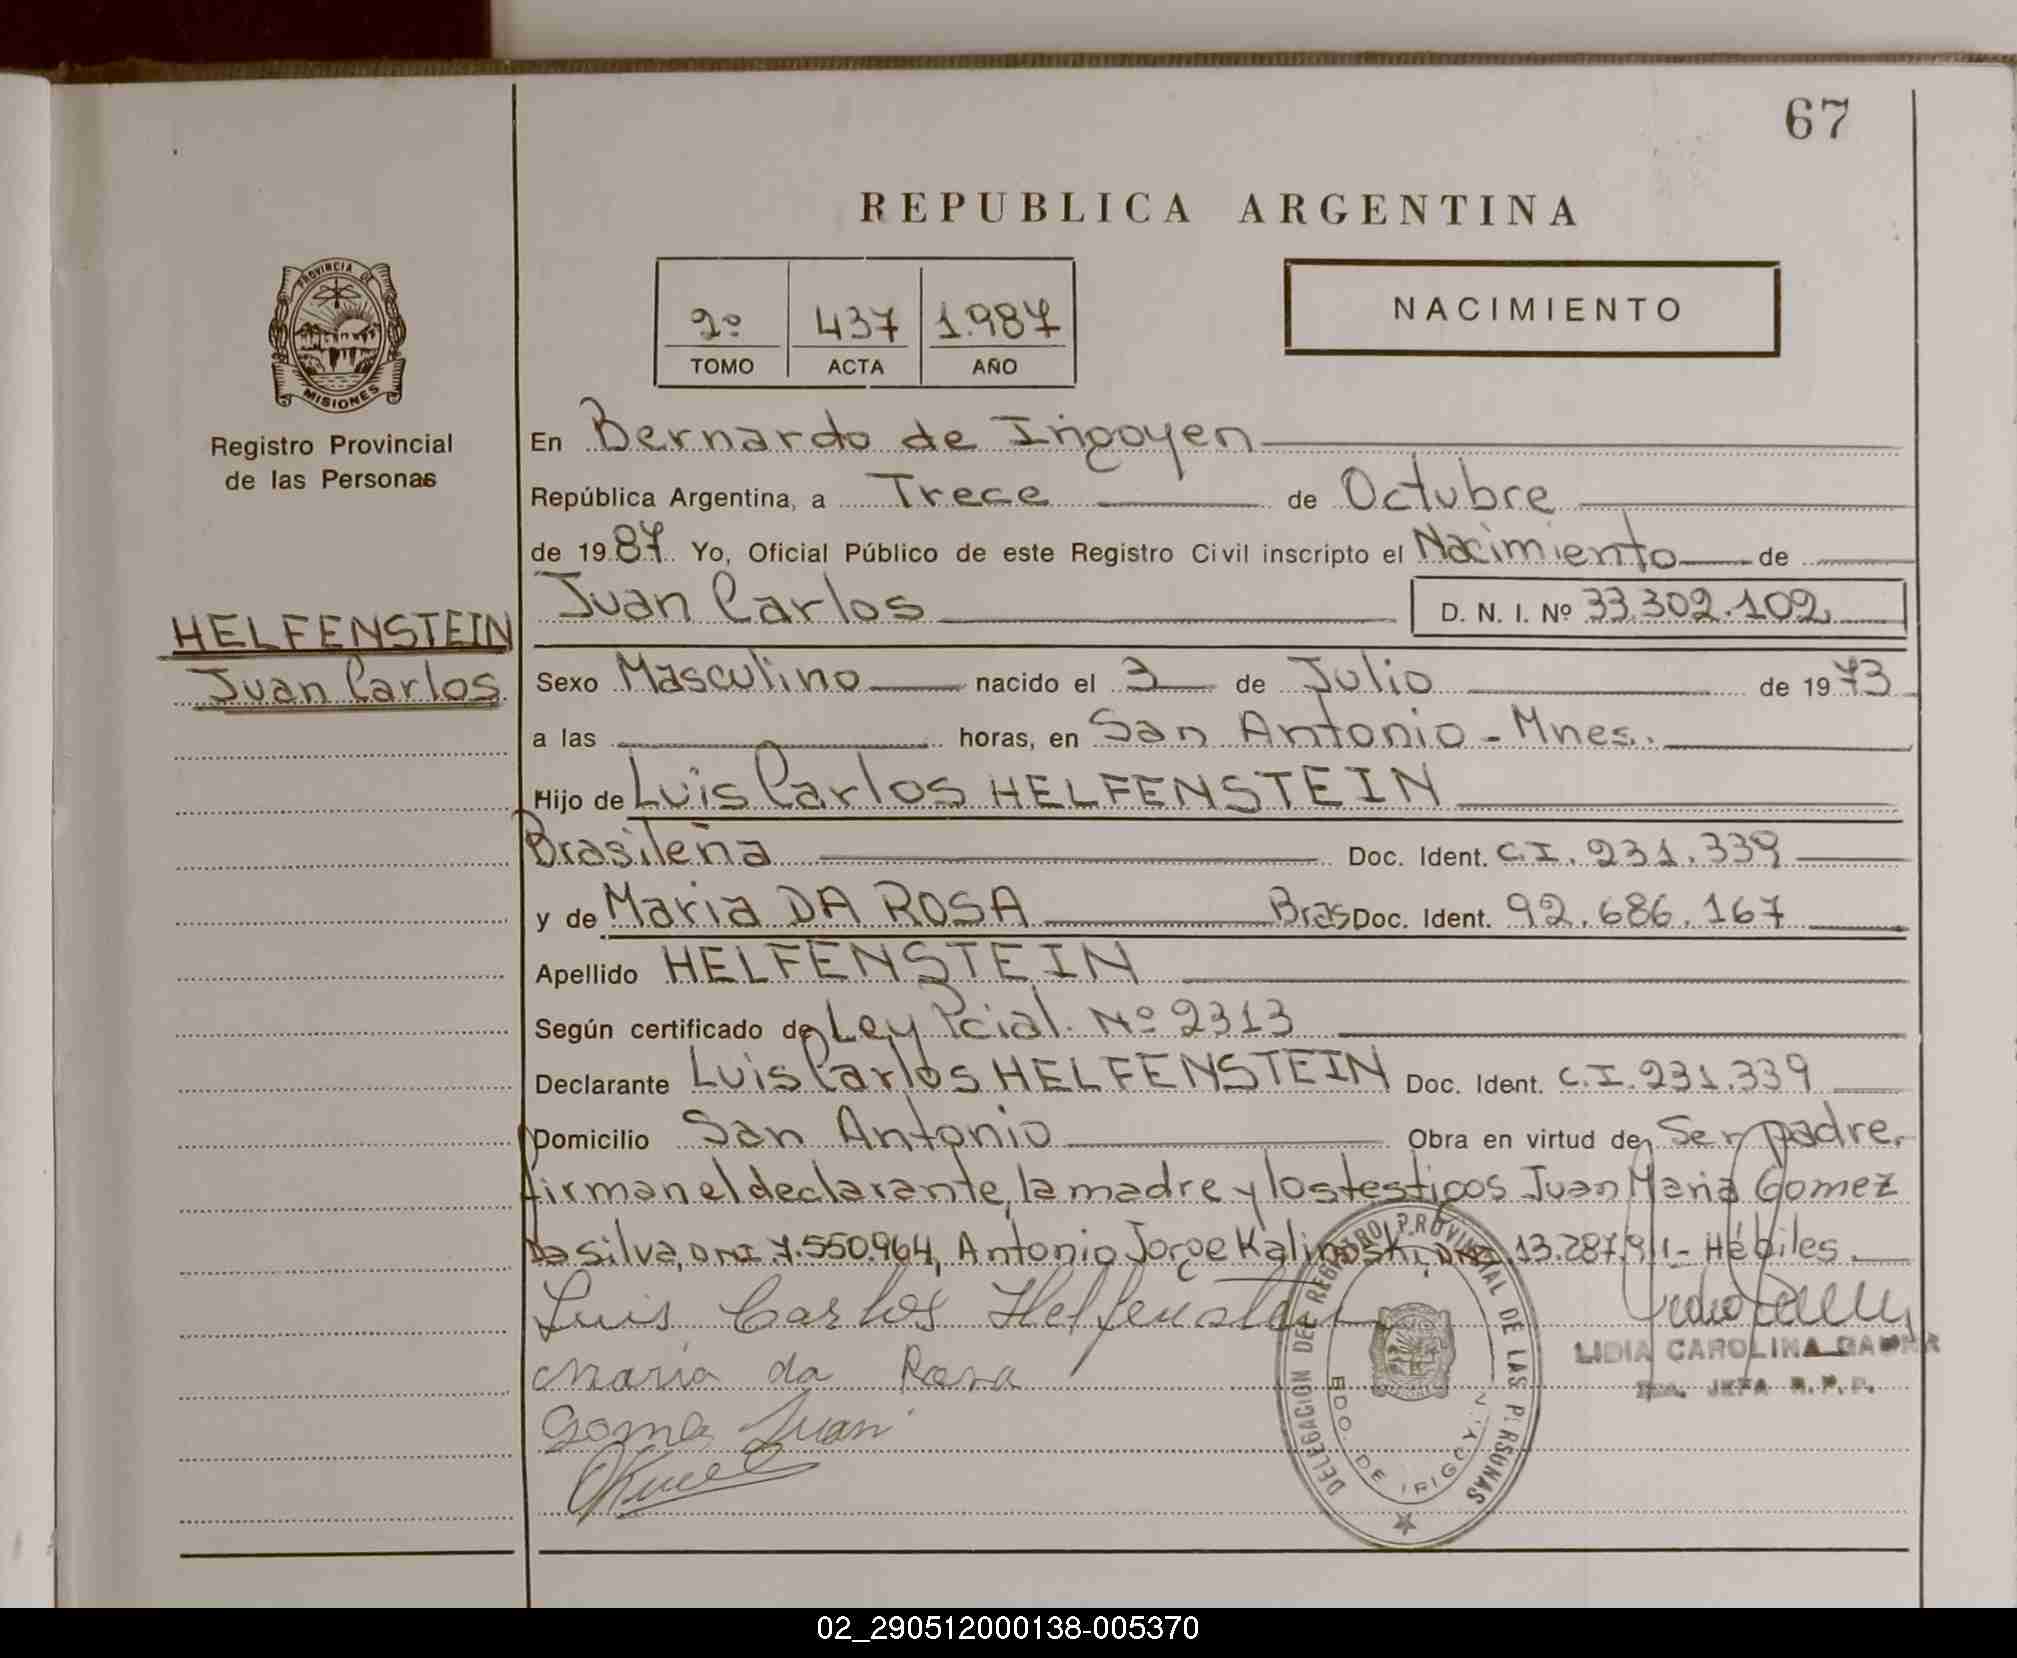 67
REPUBLICA ARGENTINA
2º 437 1.987
TOMO ACTA AÑO
NACIMIENTO
PROVINCIA DE
MISIONES
Registro Provincial
de las Personas
HELFENSTEIN
Juan Carlos
En Bernardo de Irigoyen
República Argentina, a Trece de Octubre
de 19 87 Yo, Oficial Público de este Registro Civil inscripto el Nacimiento de
Juan Carlos D. N. I. Nº 33.302.102
Sexo Masculino nacido el 3 de Julio de 19 73
a las horas, en San Antonio - Mnes.
Hijo de Luis Carlos HELFENSTEIN
Brasileña Doc. Ident. C.I. 231.339
y de Maria DA ROSA Bras Doc. Ident. 92.686.167
Apellido HELFENSTEIN
Según certificado de Ley Pcial. Nº 2313
Declarante Luis Carlos HELFENSTEIN Doc. Ident. C.I. 231.339
Domicilio San Antonio Obra en virtud de Ser padre.
firman el declarante, la madre y los testigos Juan Maria Gomez
Da silva, DNI. 7.550.964, Antonio Jorge Kalinoski, DNI. 13.287.911 - Hábiles.
Luis Carlos Helfenstein
Maria da Rosa
Gomes Juan
DELEGACION DEL REGISTRO PROVINCIAL DE LAS PERSONAS
BDO. DE IRIGOYEN
LIDIA CAROLINA
JEFA R.P.P.
02_290512000138-005370